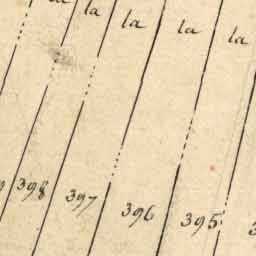 la la la la
398 397 396 395